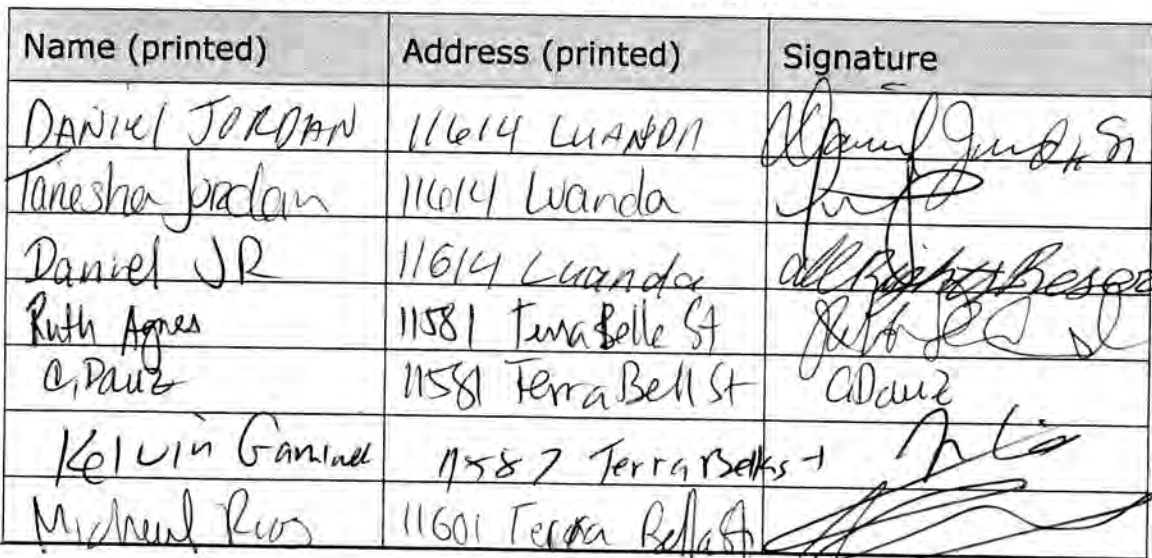 Name (printed) Address (printed) Signature
DANIEL JORDAN 11614 LUANDA
Tanesha Jordan 11614 Luanda
Daniel JR 11614 Luanda all Right Reser
Ruth Agnes 11581 Terra Belle St
C. Dauz 11581 Terra Bell St CDauz
Kelvin 11587 Terra Bella St
Micheal Rios 11601 Terra Bella St